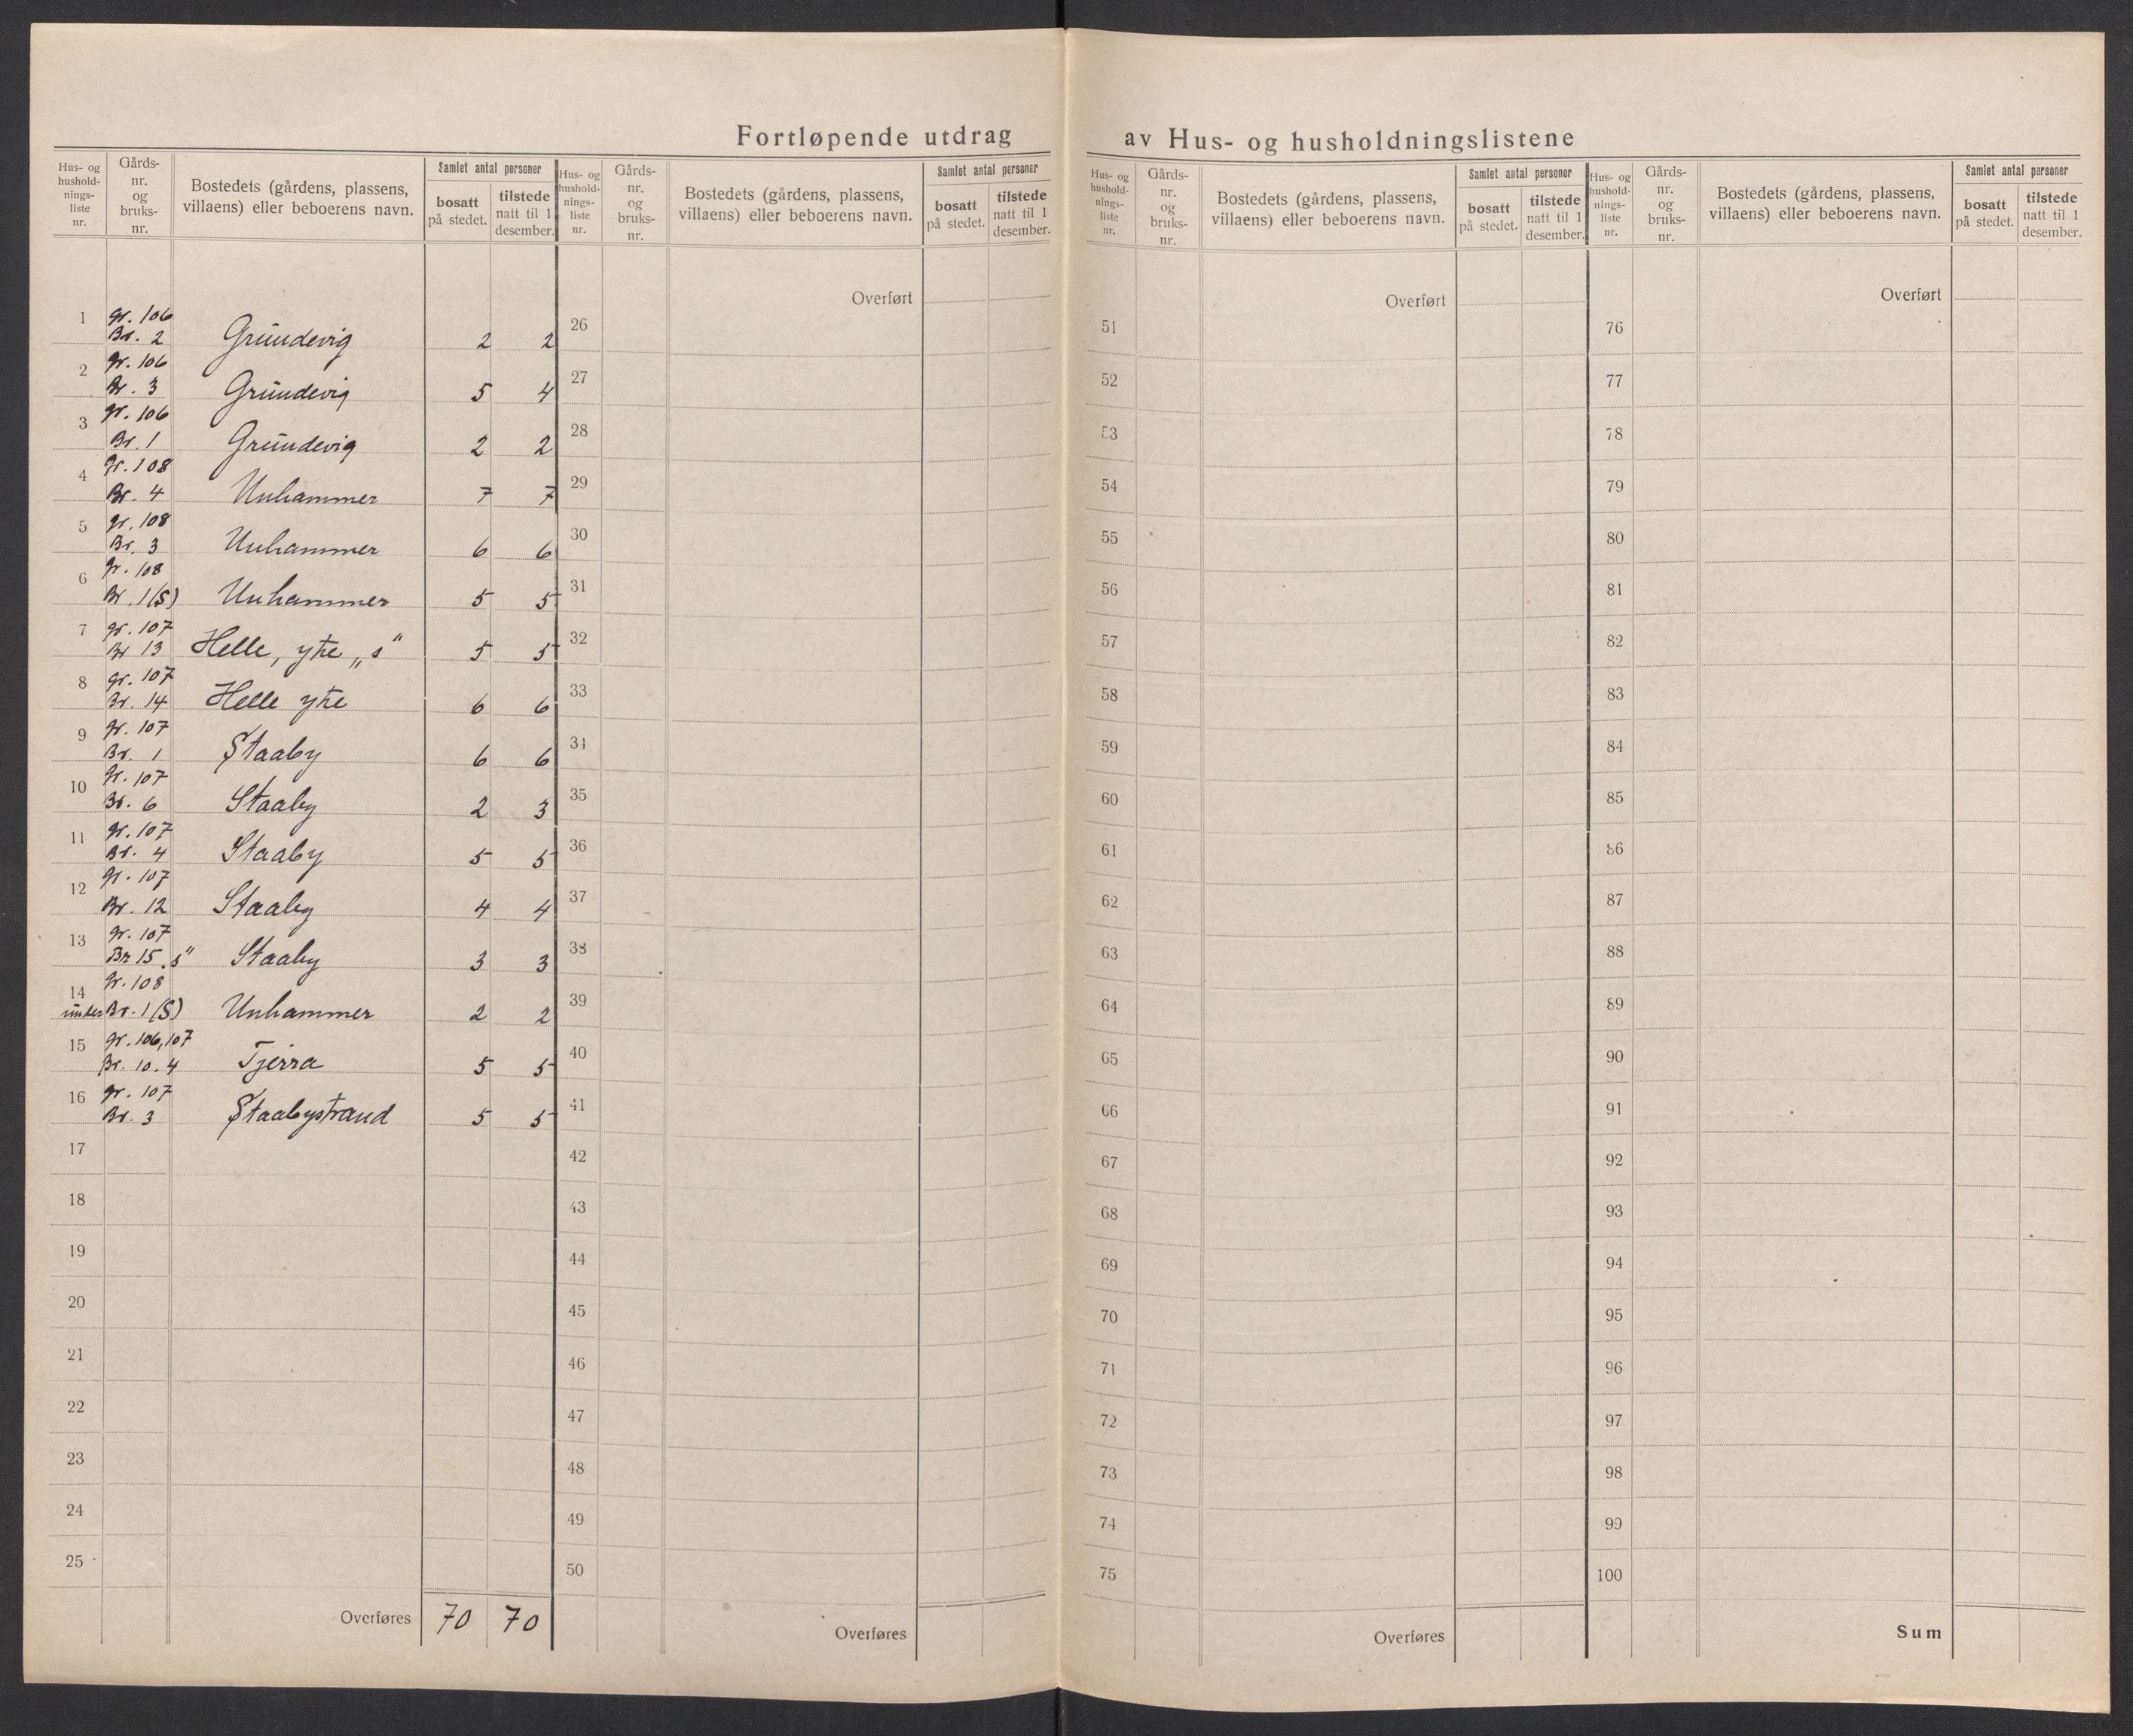 Fortløpende utdrag av Hus- og husholdningslistene
Hus- og husholdnings-liste nr. Gårds-nr. og bruks-nr. Bostedets (gårdens, plassens, villaens) eller beboerens navn. Samlet antal personer bosatt på stedet. tilstede natt til 1 desember.
Hus- og husholdnings-liste nr. Gårds-nr. og bruks-nr. Bostedets (gårdens, plassens, villaens) eller beboerens navn. Samlet antal personer bosatt på stedet. tilstede natt til 1 desember.
Hus- og husholdnings-liste nr. Gårds-nr. og bruks-nr. Bostedets (gårdens, plassens, villaens) eller beboerens navn. Samlet antal personer bosatt på stedet. tilstede natt til 1 desember.
Hus- og husholdnings-liste nr. Gårds-nr. og bruks-nr. Bostedets (gårdens, plassens, villaens) eller beboerens navn. Samlet antal personer bosatt på stedet. tilstede natt til 1 desember.
1 gr. 106 Br. 2 Grundevig 2 2
2 gr. 106 Br. 3 Grundevig 5 4
3 gr. 106 Br. 1 Grundevig 2 2
4 gr. 108 Br. 4 Unhammer 7 7
5 gr. 108 Br. 3 Unhammer 6 6
6 gr. 108 Br. 1 (S) Unhammer 5 5
7 gr. 107 Br 13 Helle, ytre „s" 5 5
8 gr. 107 Br. 14 Helle ytre 6 6
9 gr. 107 Br. 1 Staaby 6 6
10 gr. 107 Br. 6 Staaby 2 3
11 gr. 107 Br. 4 Staaby 5 5
12 gr. 107 Br. 12 Staaby 4 4
13 gr. 107 Br 15 „s" Staaby 3 3
14 under gr. 108 Br. 1 (S) Unhammer 2 2
15 gr. 106, 107 Br. 10. 4 Tjerra 5 5
16 gr. 107 Br. 3 Staabystrand 5 5
17
18
19
20
21
22
23
24
25
Overføres 70 70
Overført
26
27
28
29
30
31
32
33
34
35
36
37
38
39
40
41
42
43
44
45
46
47
48
49
50
Overføres
Overført
51
52
53
54
55
56
57
58
59
60
61
62
63
64
65
66
67
68
69
70
71
72
73
74
75
Overføres
Overført
76
77
78
79
80
81
82
83
84
85
86
87
88
89
90
91
92
93
94
95
96
97
98
99
100
Sum